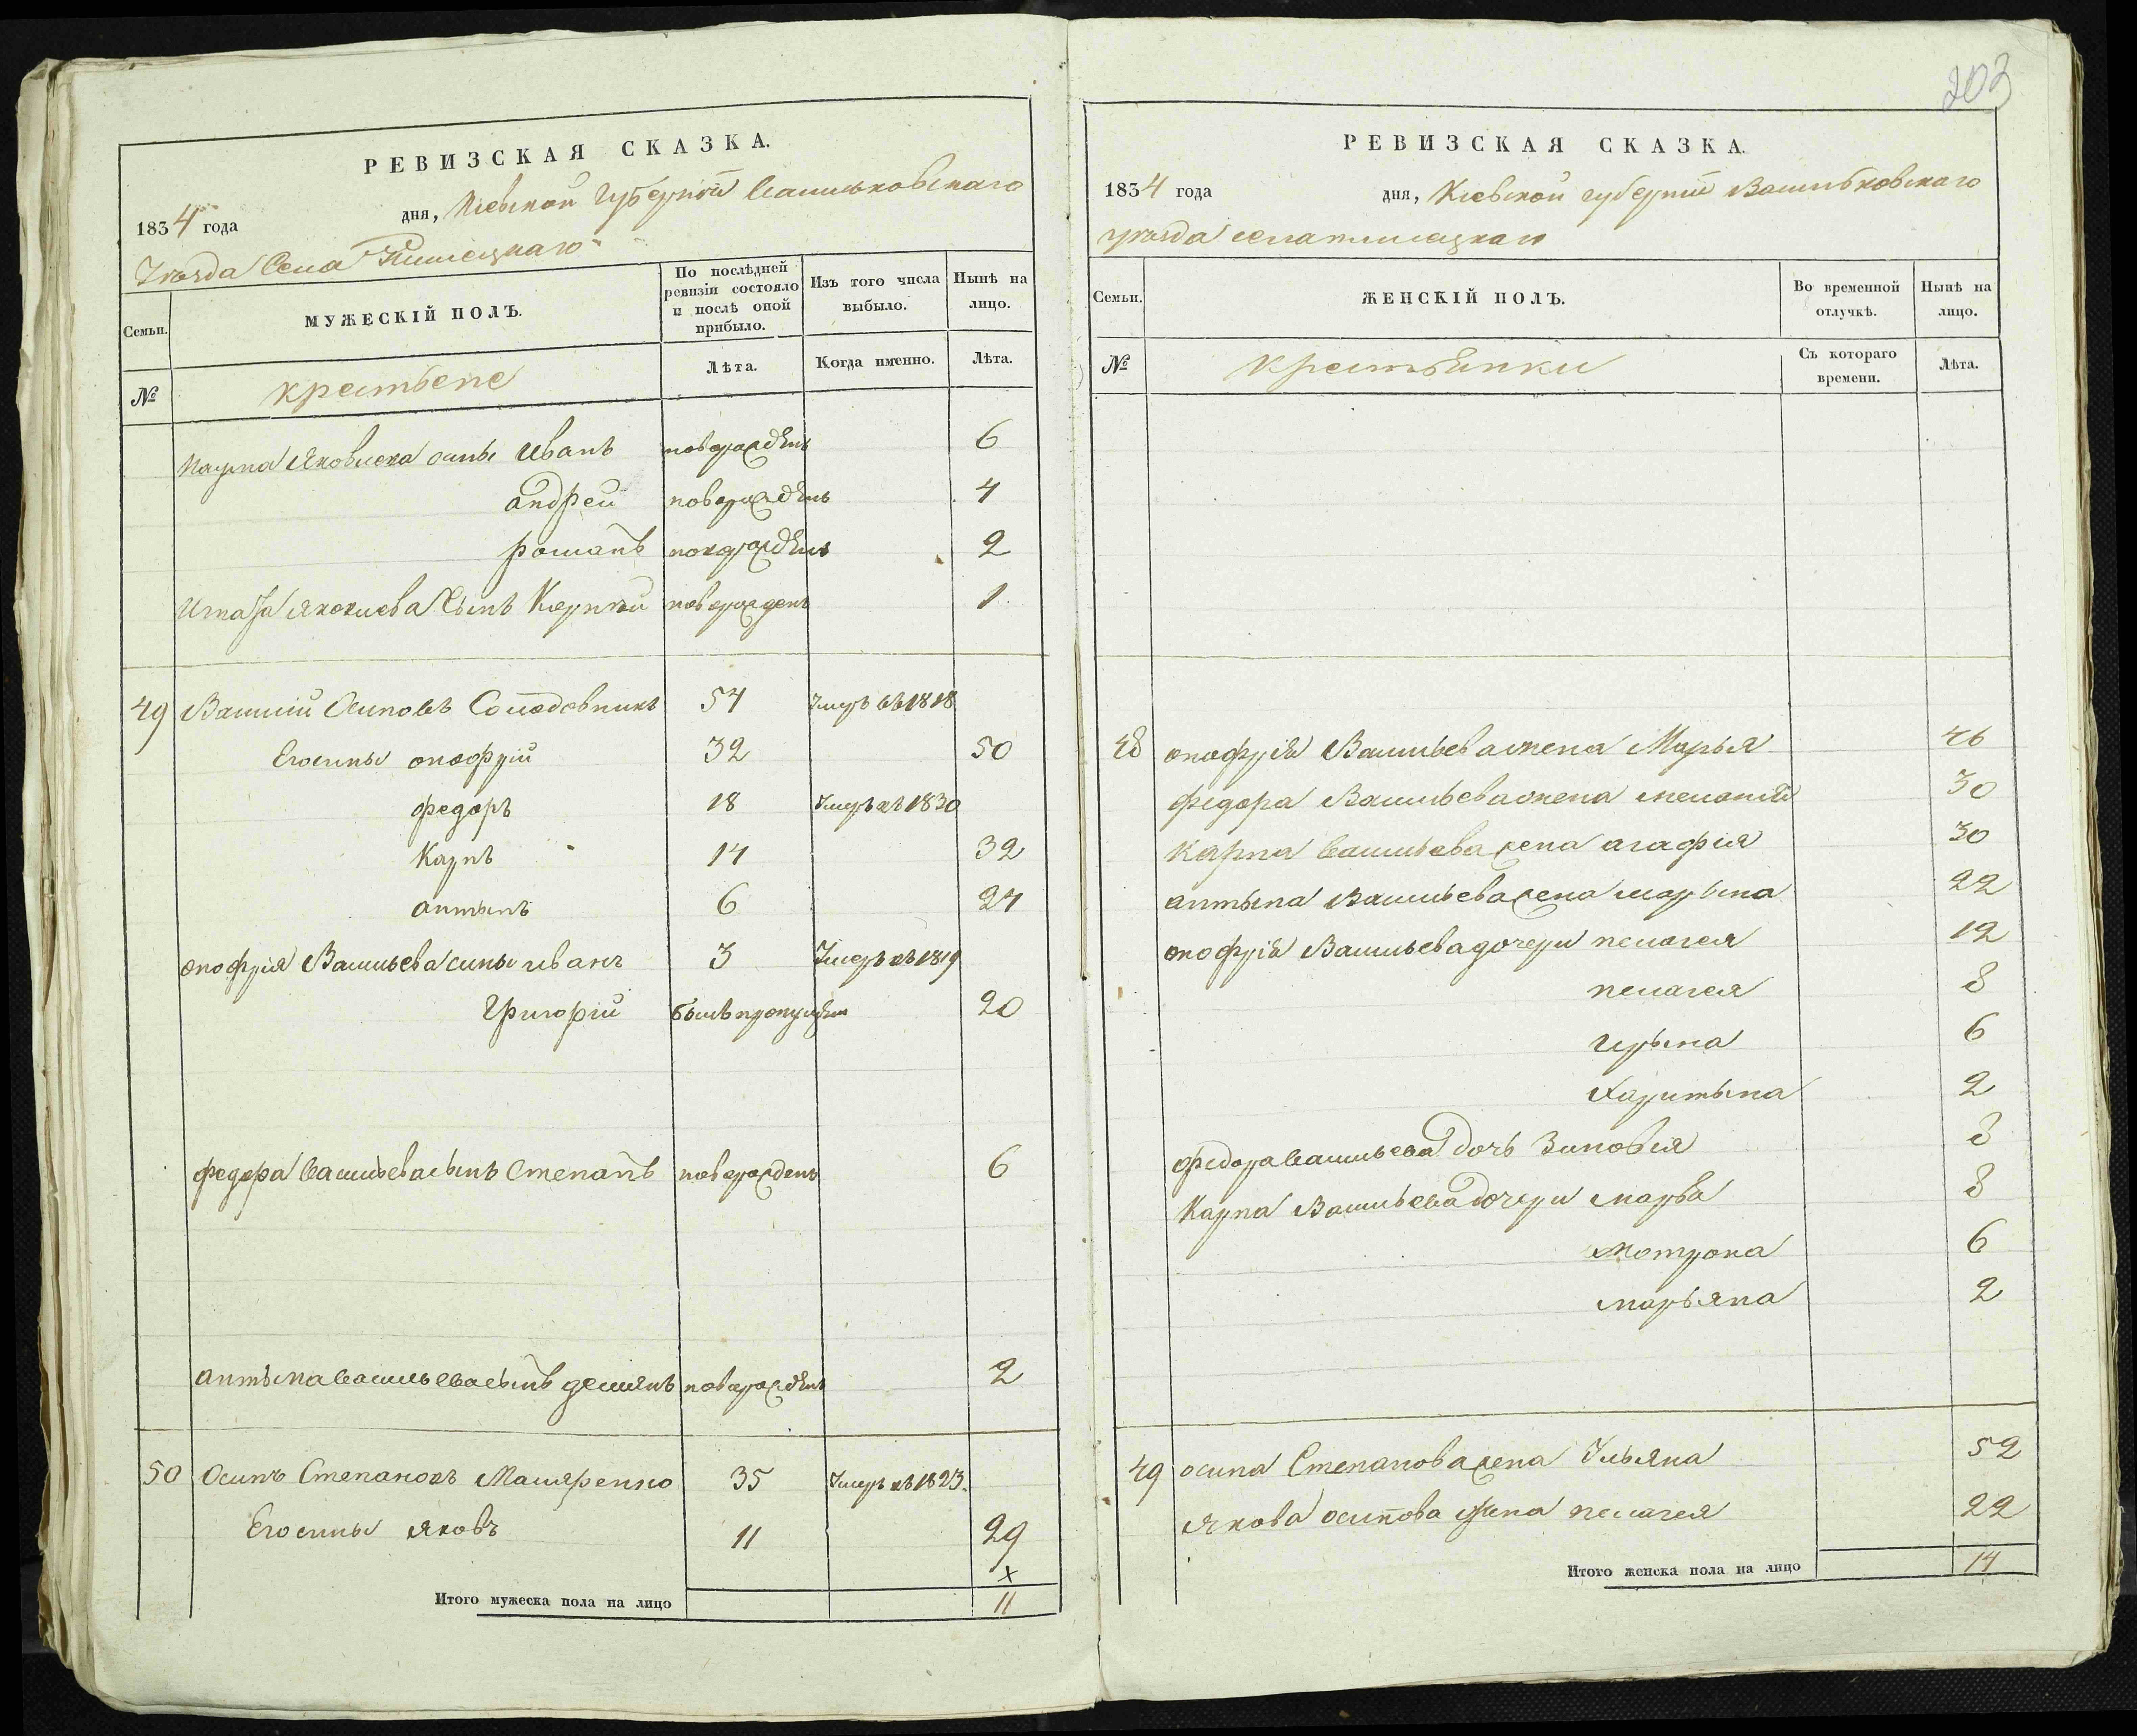 203
РЕВИЗСКАЯ СКАЗКА.
1834 года дня, Киевской Губернии Васильковскаго
Уезда Села
Семьи. МУЖЕСКІЙ ПОЛЪ. По послѣдней ревизіи состояло и послѣ оной прибыло. Изъ того числа выбыло. Нынѣ на лицо.
№ крестьяне Лѣта. Когда именно. Лѣта.
Яковлева сыны Иванъ новорожденъ 6
андрей новорожденъ 4
романъ новорожденъ 2
Яковлева Сынъ новорожденъ 1
49 Василий Осиповъ Солодовникъ 54 Умеръ въ 1818
Его сины онофрий 32 50
федоръ 18 Умеръ въ 1830
Карпъ 14 32
антынъ 6 24
онофрия Васильева сины иванъ 3 Умеръ въ 1819
Григорий былъ пропущенъ 20
федора васильева сынъ Степанъ новорожденъ 6
антына васильева сынъ демянъ новорожденъ 2
50 Осипъ Степановъ 35 Умеръ въ 1823.
Его сины яковъ 11 29
x
Итого мужеска пола на лицо 11
РЕВИЗСКАЯ СКАЗКА.
1834 года дня, Киевской губернии Васильковскаго
уезда села
Семьи. ЖЕНСКІЙ ПОЛЪ. Во временной отлучкѣ. Нынѣ на лицо.
№ крестьянки Съ котораго времени. Лѣта.
48 онофрия Васильева жена Марья 46
федора Васильева жена 30
Карпа васильева жена агафия 30
антына Васильева жена марына 22
онофрия Васильева дочери пелагея 12
пелагея 8
ирына 6
Харитына 2
федора васильева дочь Зиновия 8
Карпа Васильева дочери марья 8
мотрона 6
марьяна 2
49 осипа Степанова жена Ульяна 52
якова осипова жена пелагея 22
Итого женска пола на лицо 14